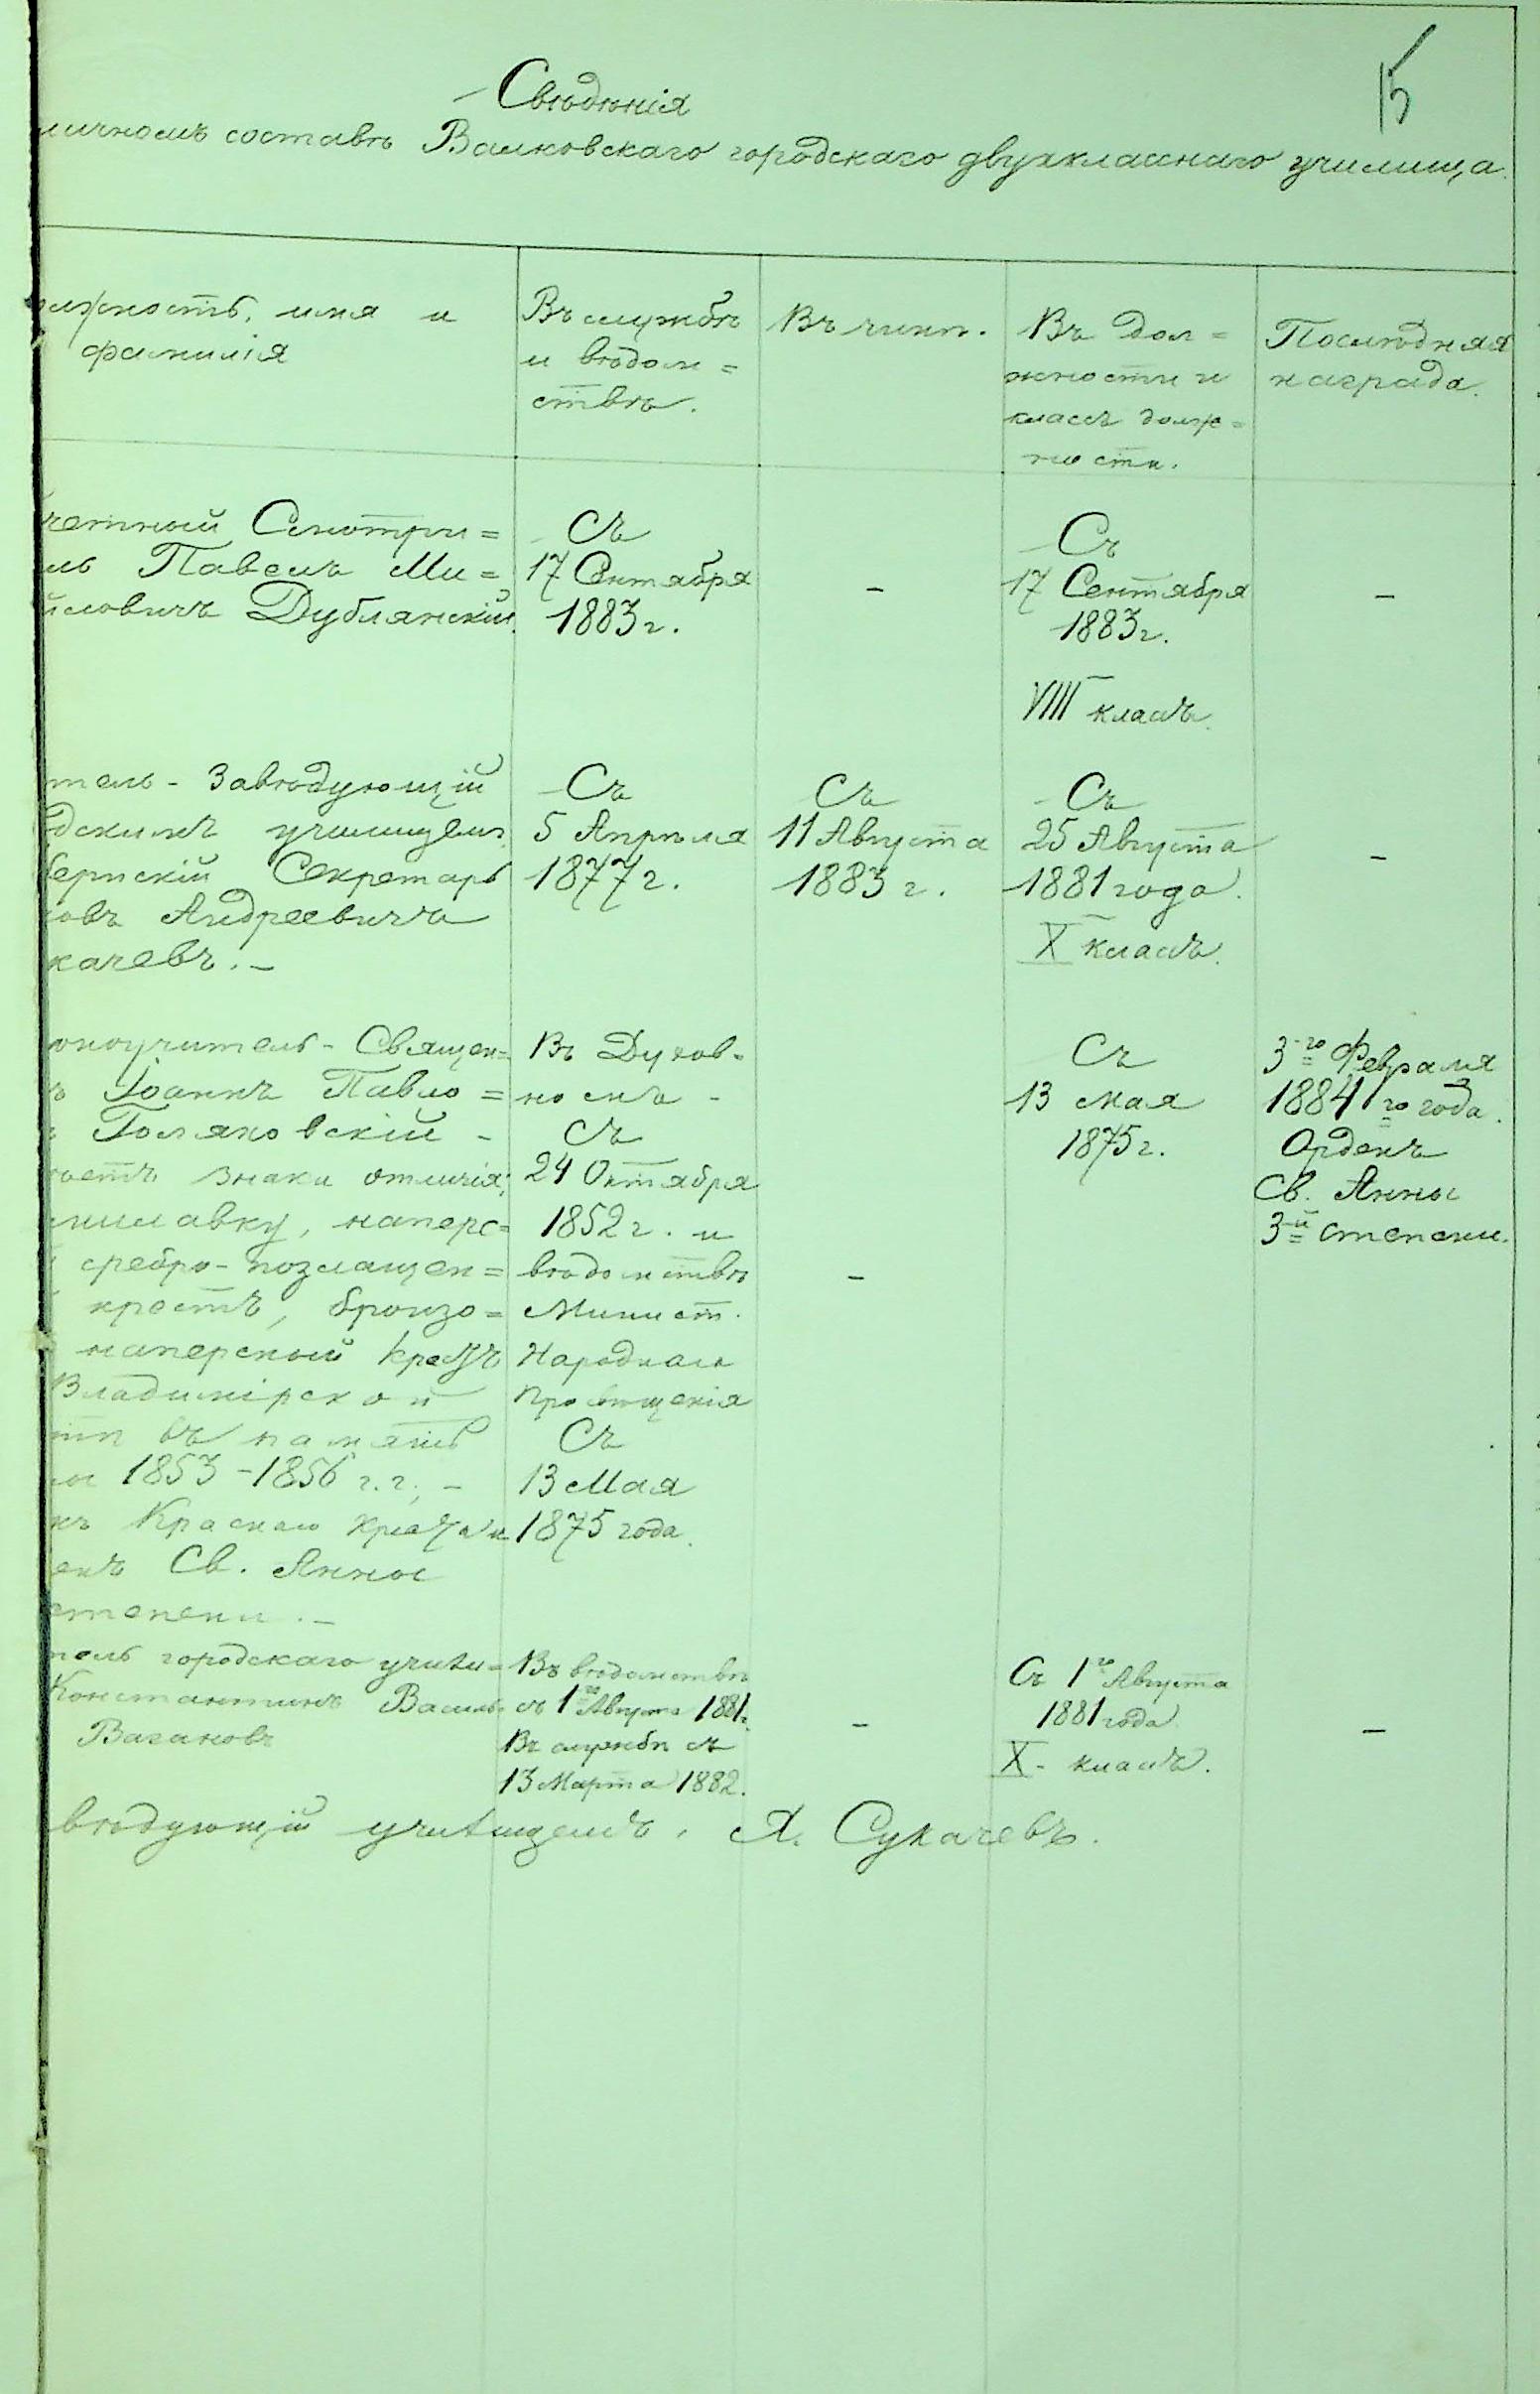 15
Свѣдѣнія
личномъ составѣ Валковскаго городскаго двухкласснаго училища.
олжность, имя и
фамилія
Въ службѣ
и вѣдом=
ствѣ.
Въ чинѣ.
Въ дол=
жности и
классъ долж=
ности.
Послѣдняя
награда.
четный Смотри=
ль Павелъ Ми=
йловичъ Дублянскій.
Съ
17 Сентября
1883 г.
-
Съ
17 Сентября
1883 г.
VIII классъ.
-
тель - Завѣдующій
дскимъ училищемъ
бернскій Секретарь
ковъ Андреевичъ
качевъ. -
Съ
5 Апрѣля
1877 г.
Съ
11 Августа
1883 г.
Съ
25 Августа
1881 года.
X классъ.
-
оноучитель - Священ=
ъ Іоаннъ Павло=
ъ Голяховскій -
ѣетъ знаки отличія:
милавку, наперс=
й сребро-позлащен=
й крестъ, бронзо=
наперсный крестъ
Владимірской
нтѣ въ память
ны 1853-1856 г.г.; -
къ Краснаго креста и
енъ Св. Анны
степени. -
Въ Духов-
номъ -
съ
24 Октября
1852 г. и
вѣдомствѣ
Минист.
Народнаго
Просвѣщенія
Съ
13 Мая
1875 года.
-
Съ
13 мая
1875 г.
3-го Февраля
1884 го года.
Орденъ
Св. Анны
3-й степени.
тель городскаго учили=
Константинъ Василь-
Вагановъ
Въ вѣдомствѣ
съ 1го Августа 1881 г.
Въ службѣ съ
13 Марта 1882.
-
Съ 1го Августа
1881 года
X - классъ.
-
вѣдующій училищемъ, Я. Сукачевъ.